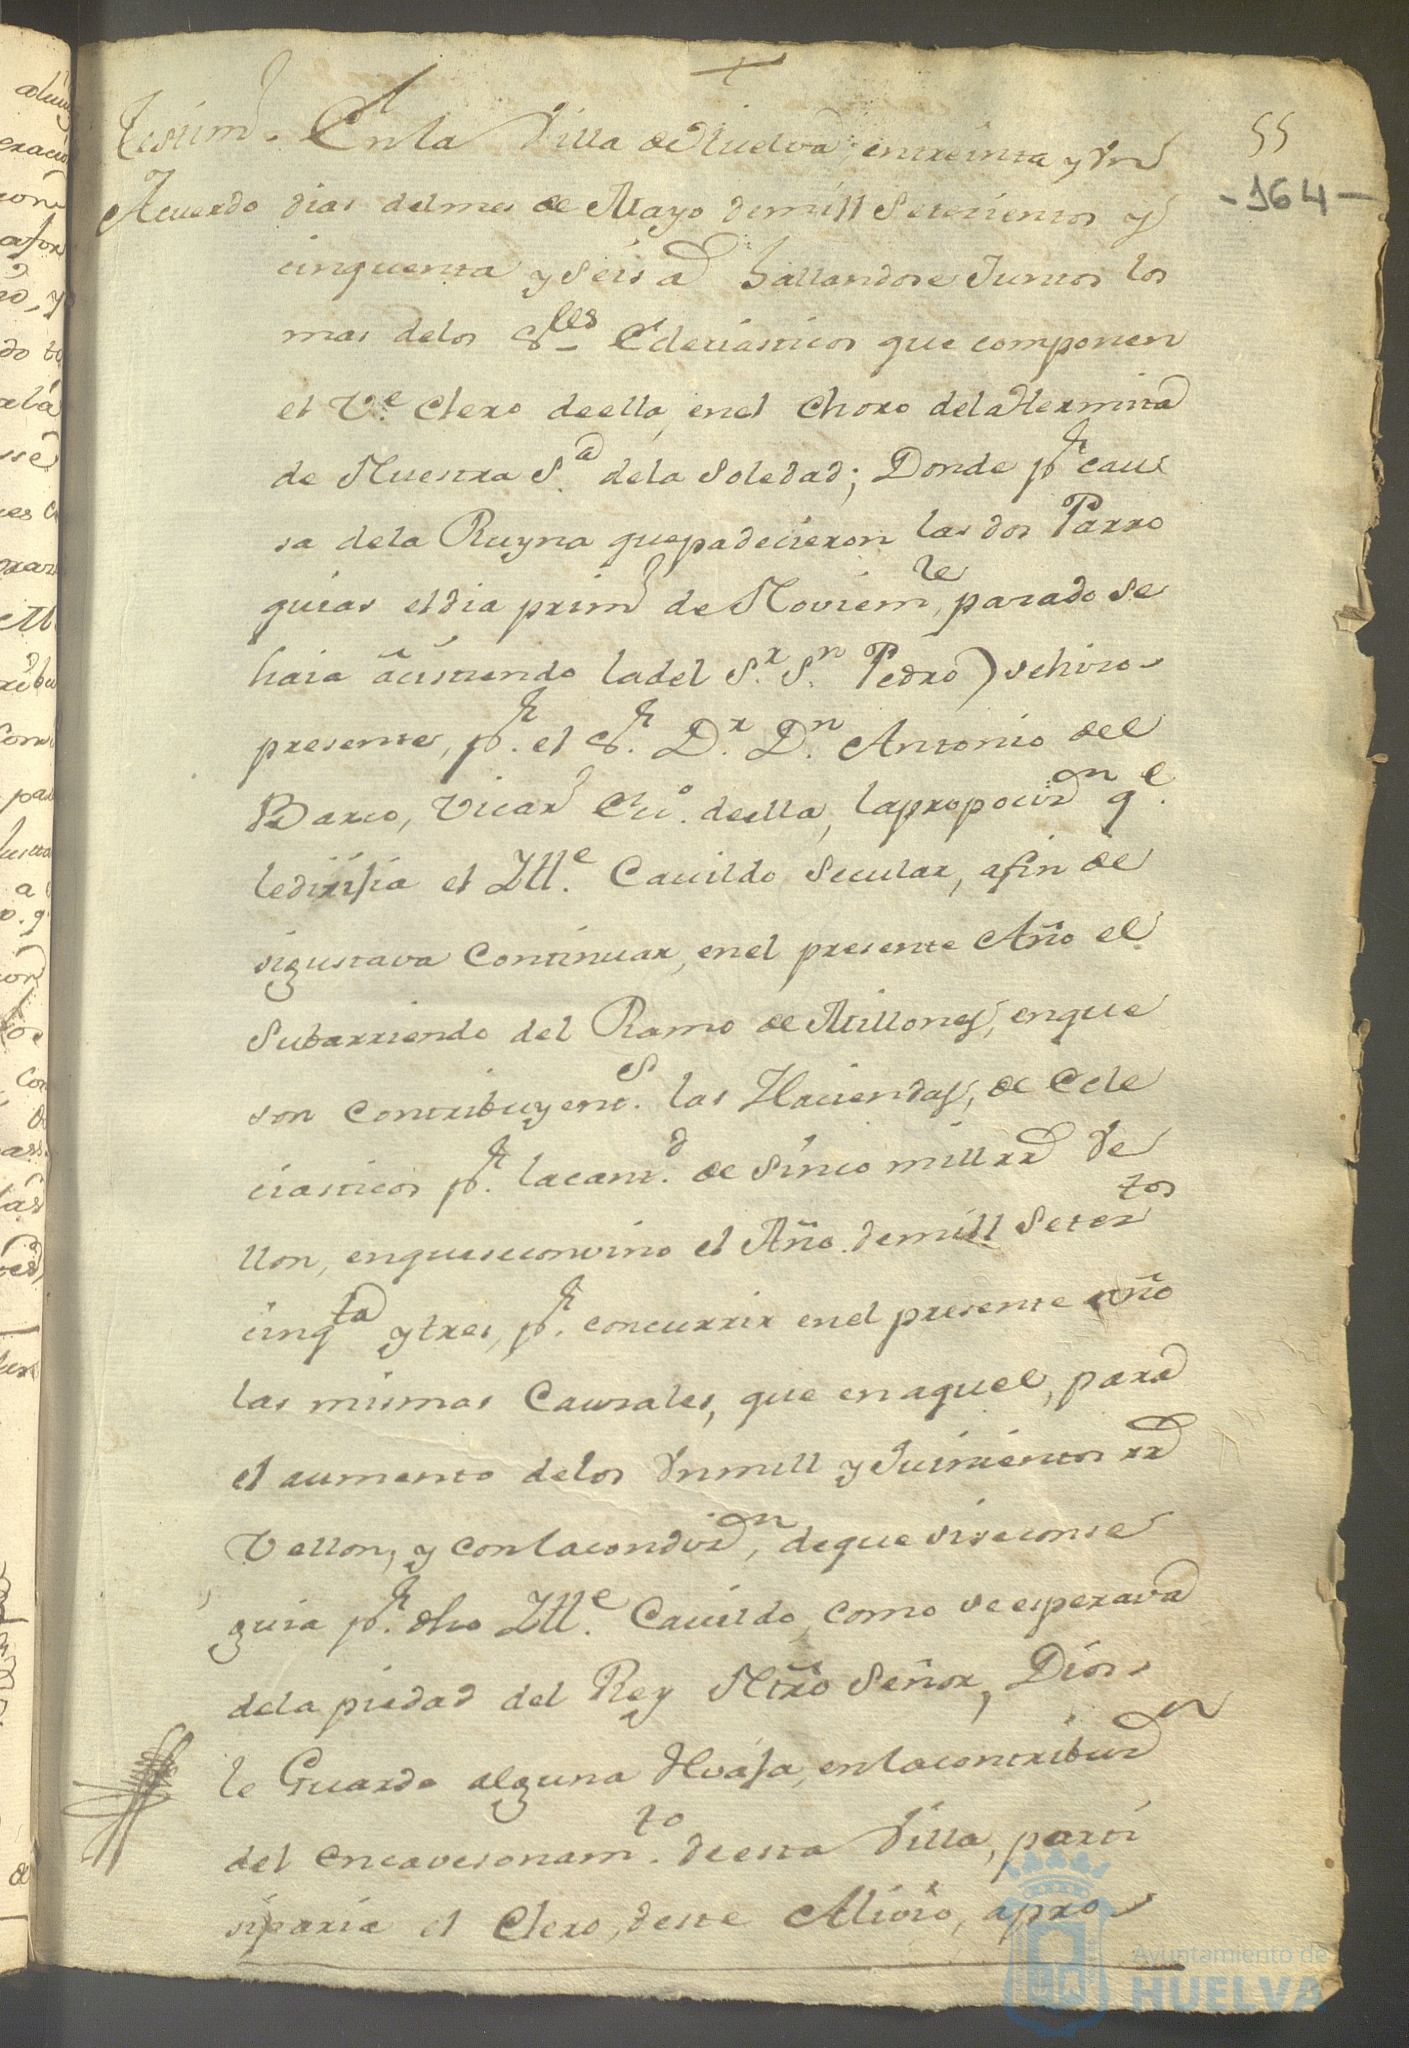 +
55
-164-
Testim.º En la Villa de Huelva, en treinta y Un
Acuerdo dias del mes de Mayo de mill Setecientos y
cinquenta y Seis a hallandose Juntos los
mas de los S.res Eclesiasticos que componen
el V.e Clero de ella, en el Choro de la Hermita
de Nuestra S.a de la Soledad; Donde p.r cau
sa de la Ruyna que padecieron las dos Parro
quias el dia prim.o de Noviem.re pasado se
haia
la del S.r S.n Pedro) se hizo
presente, p.r el S.r D.r D.n Antonio del
Barco, Vicar.o Ecc.o de ella, la proposiz.n q.e
le dirijia el Ill.e Cavildo Secular, a fin de
si gustava Continuar, en el presente Año el
Subarriendo del Ramo de Millones, en que
son Contribuyent.s las Haciendas, de Ecle
ciasticos p.r la cant.d de Sinco mill rr.s Ve
llon, en que se convino el Año de mill Setez.tos
cinq.ta y tres, p.r concurrir en el presente año
las mismas Causales, que en aquel, para
el aumento de los Un mill y quinientos rr.s
Vellon, y con la condiz.n, de que si se conse
guia p.r dho Ill.e Cavildo, como se esperava
de la piedad del Rey Ntro Señor, Dios
le Guarde alguna Rvaja, en la contribuz.n
del encavesonam.to de esta Villa, parti
siparia el Clero, deste Alivio, apro
Ayuntamiento de
HUELVA